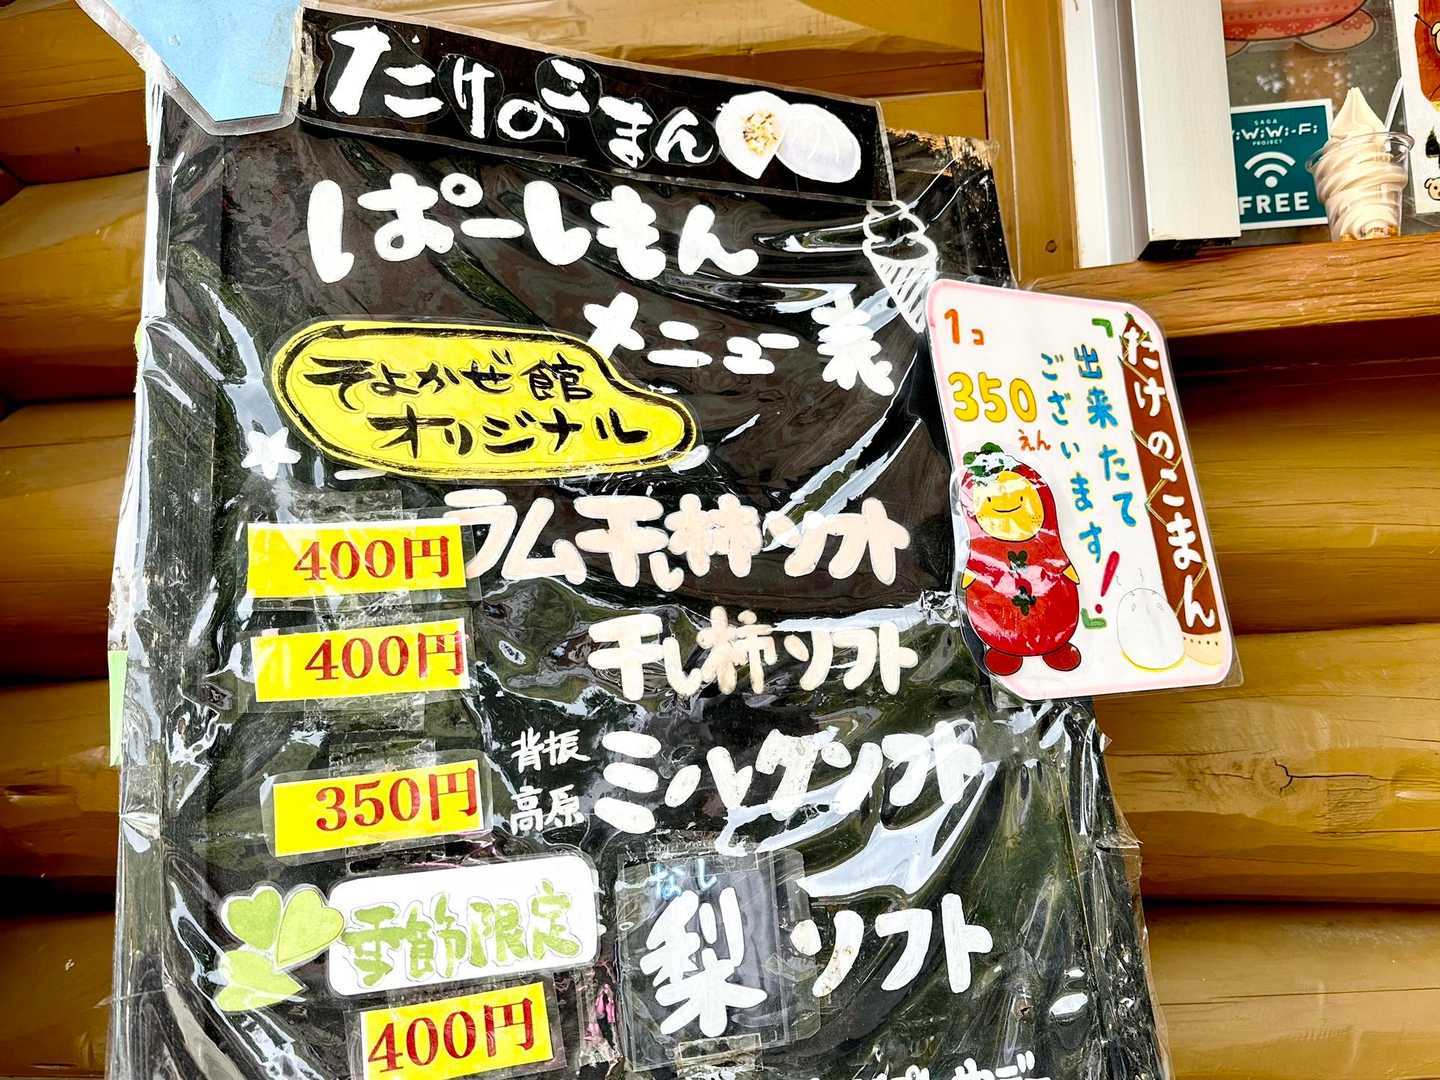 たけのこまん
ぱーしもん
メニュー表
そよかぜ館
オリジナル
ラム干し柿ソフト
400円
干し柿ソフト
400円
背振
高原
ミルクソフト
350円
季節限定
なし
梨ソフト
400円
たけのこまん
「出来たて
ございます!」
1コ
350
えん
SAGA
PROJECT
FREE